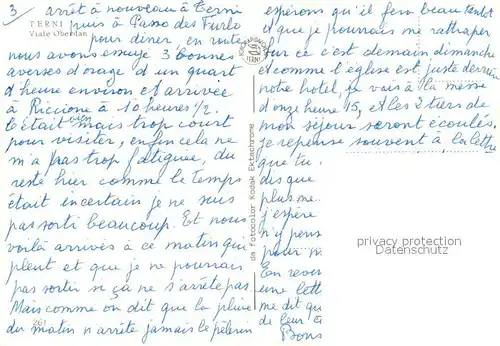 3
arrêt à nouveau à Terni
TERNI
Viale Oberdan
puis à Passo del Furlo
pour diner, en route
nous avons essuyé 3 bonnes
averses d'orage d'un quart
d'heure environ et arrivée
à Riccione à 10 heures 1/2.
C'était bien mais trop court
pour visiter, enfin cela ne
m'a pas trop fatiguée, du
reste hier comme le temps
était incertain je ne suis
pas sorti beaucoup. Et nous
voilà arrivés à ce matin qui
pleut et que je ne pourrais
pas sortir si ça ne s'arrête pas.
Mais comme on dit que la pluie
du matin n'arrête jamais le pèlerin
261
TERNI
da fotocolor Kodak Ektachrome
espérons qu'il fera beau tantôt
et que je pourrais me rattraper
sur ce c'est demain dimanche
et comme l'église est juste derrière
notre hôtel, je vais à la messe
d'onze heures 15, et les 2 tiers de
mon séjour seront écoulés,
je repense souvent à la lettre
que tu
dis que
plus me
j'espère
n'y pens
pour n
En revoi
une lett
me dit qu
de leur
Bons
privacy protection
Datenschutz